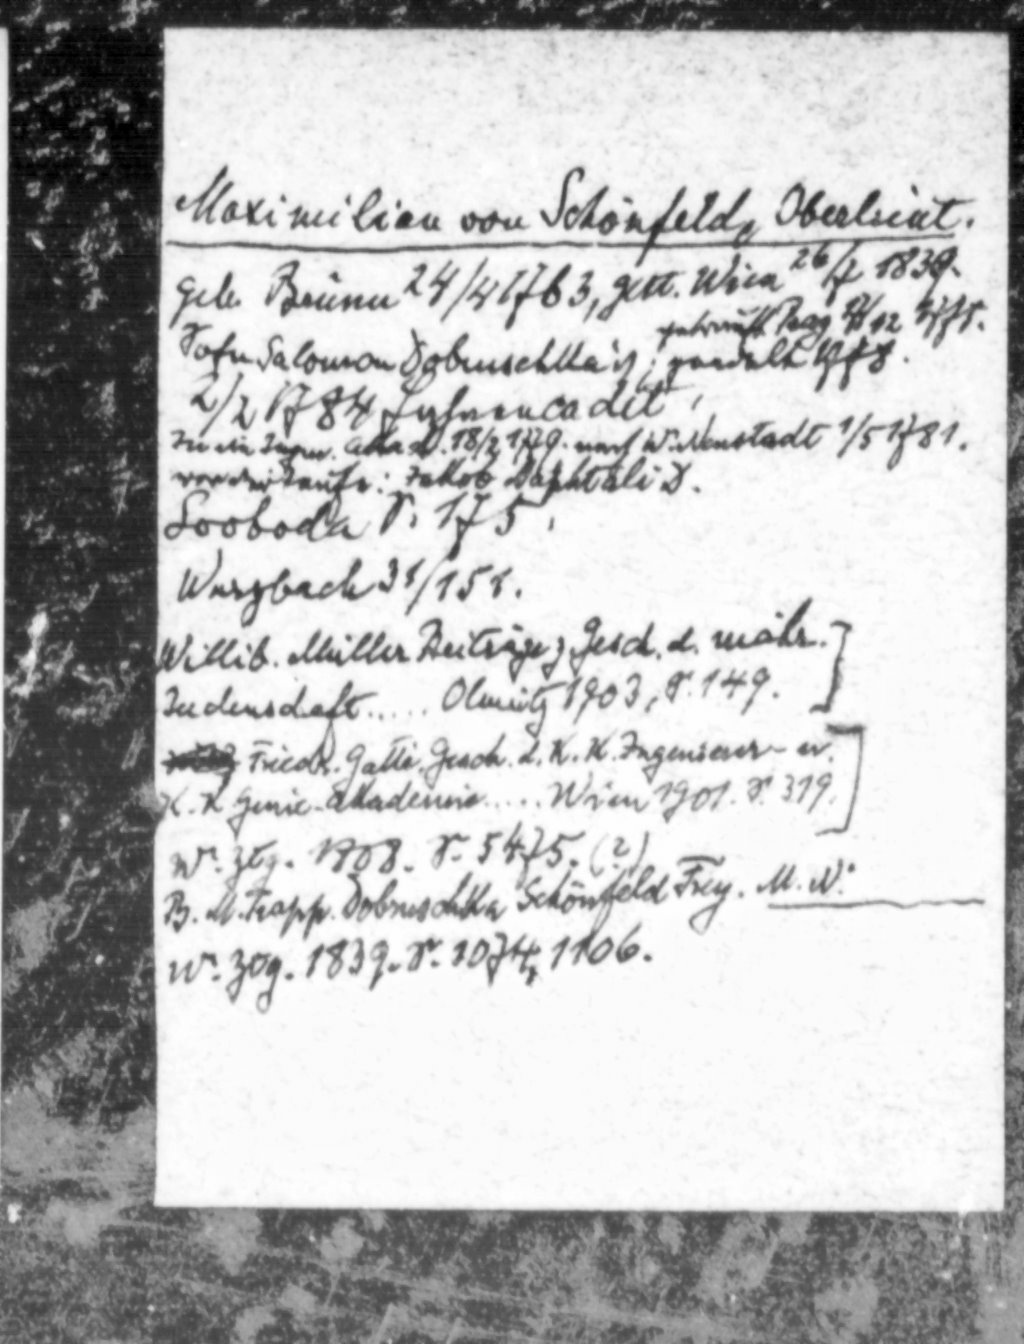 Maximilian von Schönfeld, Oberleut.
geb. Brünn 24/4 1763, gest. Wien 26/2 1839.
getauft Prag 17/12 1775.
Sohn Salomon Dobruschka's; geadelt 1778.
2/2 1784 Fahnencadet,
In die Ingen. Akad. 18/2 1779. nach W. Neustadt 1/5 1781.
vor der Taufe: Jakob Naphtali D.
Svoboda S. 175,
Wurzbach 31/151.
Willib. Müller Beiträge z. Gesch. d. mähr.
Judenschaft ..... Olmütz 1903, S. 149.
Friedr. Gatti, Gesch. d. K. K. Ingenieur- u.
K. K. Genie-Akademie ..... Wien 1901. S. 319.
W. Ztg. 1808. S. 5475. (?)
B. M. Trapp. Dobruschka Schönfeld Frey. M. N.
W. Ztg. 1839. S. 1074, 1106.